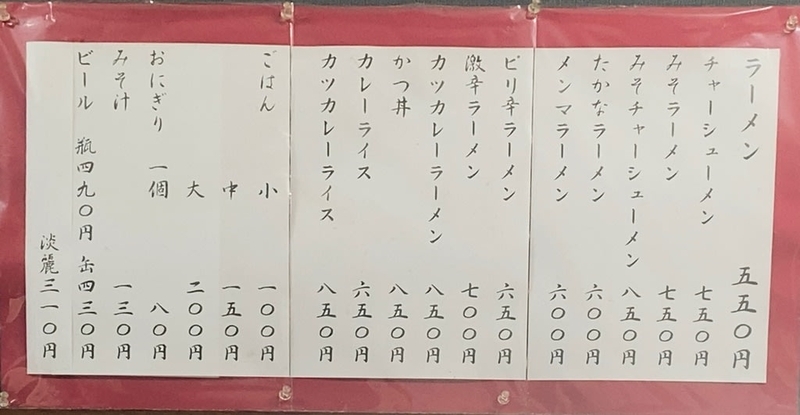 ラーメン 五五〇円
チャーシューメン 七五〇円
みそラーメン 七五〇円
みそチャーシューメン 八五〇円
たかなラーメン 六〇〇円
メンマラーメン 六〇〇円
ピリ辛ラーメン 六五〇円
激辛ラーメン 七〇〇円
カツカレーラーメン 八五〇円
かつ丼 八五〇円
カレーライス 六五〇円
カツカレーライス 八五〇円
ごはん 小 一〇〇円
中 一五〇円
大 二〇〇円
おにぎり 一個 八〇円
みそ汁 一三〇円
ビール 瓶四九〇円 缶四三〇円
淡麗三一〇円